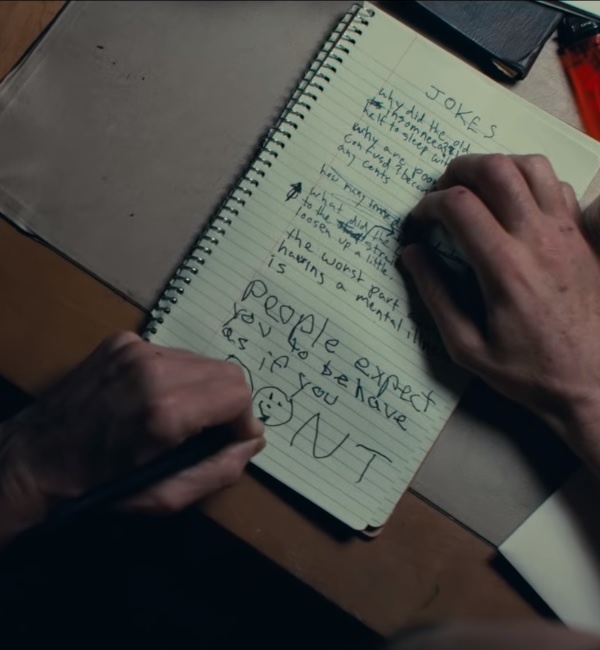 JOKES
why did the old
help to sleep with
why are poor
confused
any cents
how many
what did the
to the
loosen up a little
the worst part
having a mental
is
people expect
you to behave
as if you
DONT